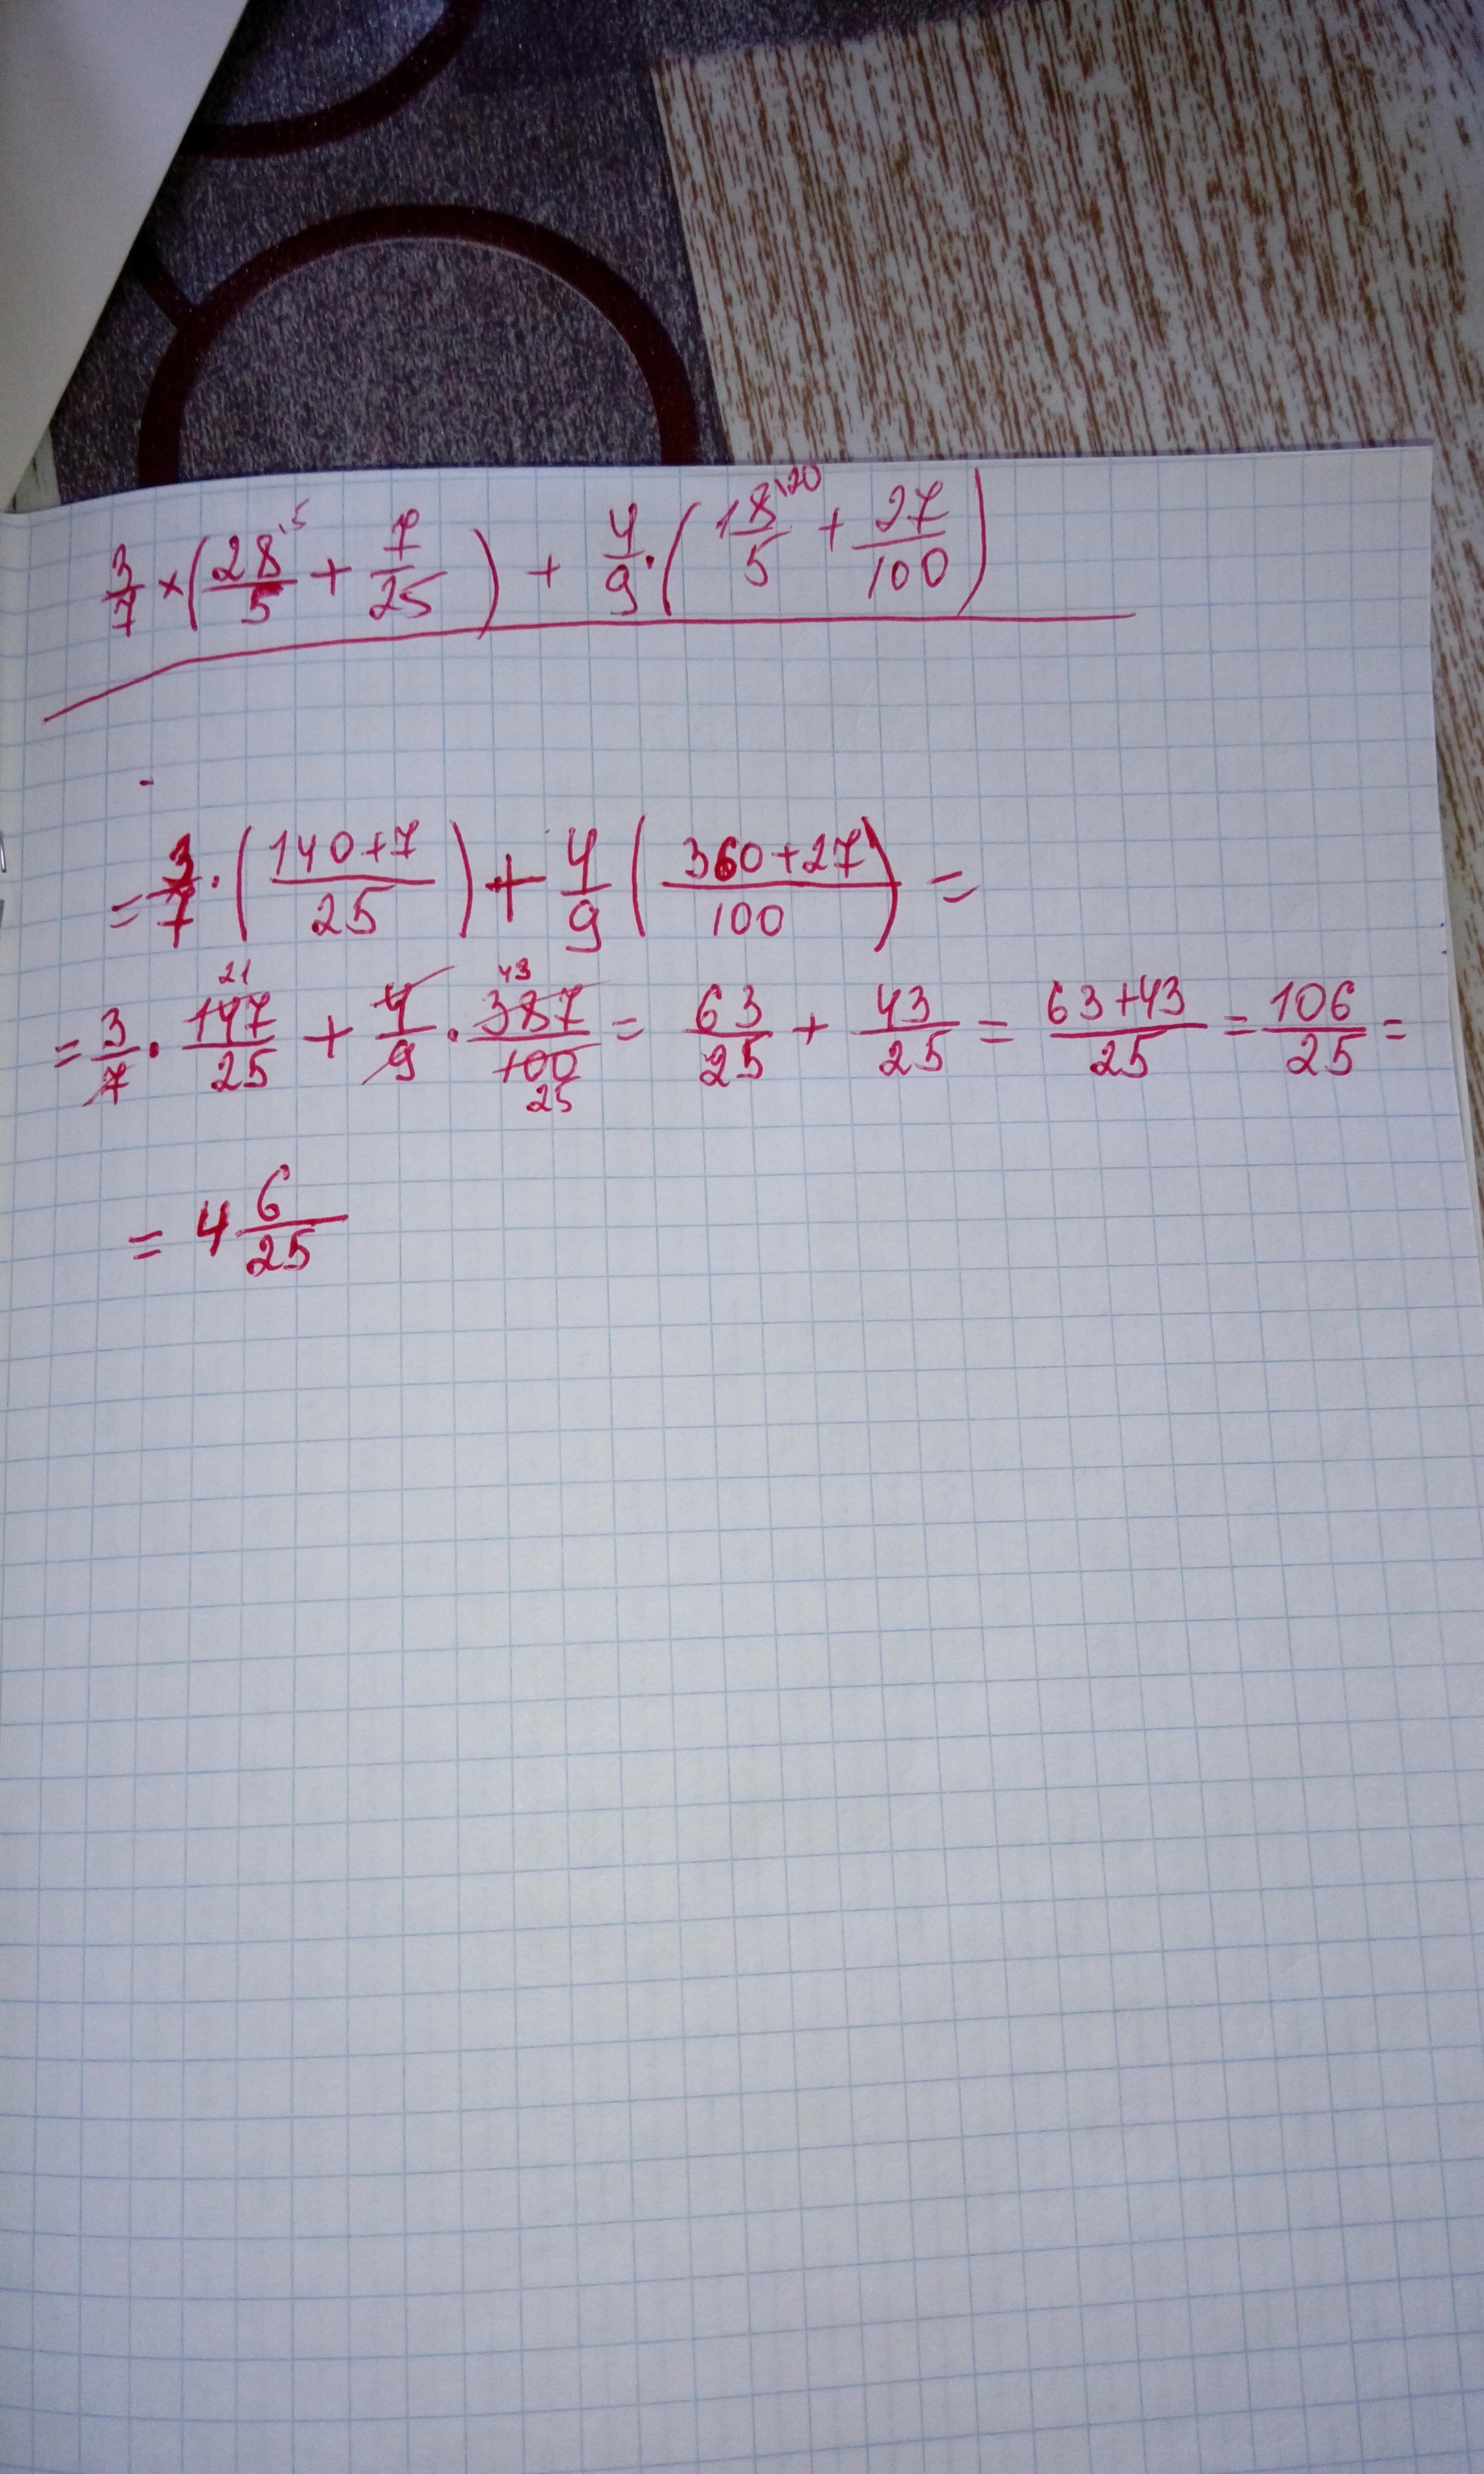 3/7 × (28\5/5 + 7/25) + 4/9 · (18\20/5 + 27/100)
= 3/7 · (140+7/25) + 4/9 (360+27/100) =
= 3/7 · 147 21/25 + 4/9 · 387 43/100 25 = 63/25 + 43/25 = 63+43/25 = 106/25 =
= 4 6/25